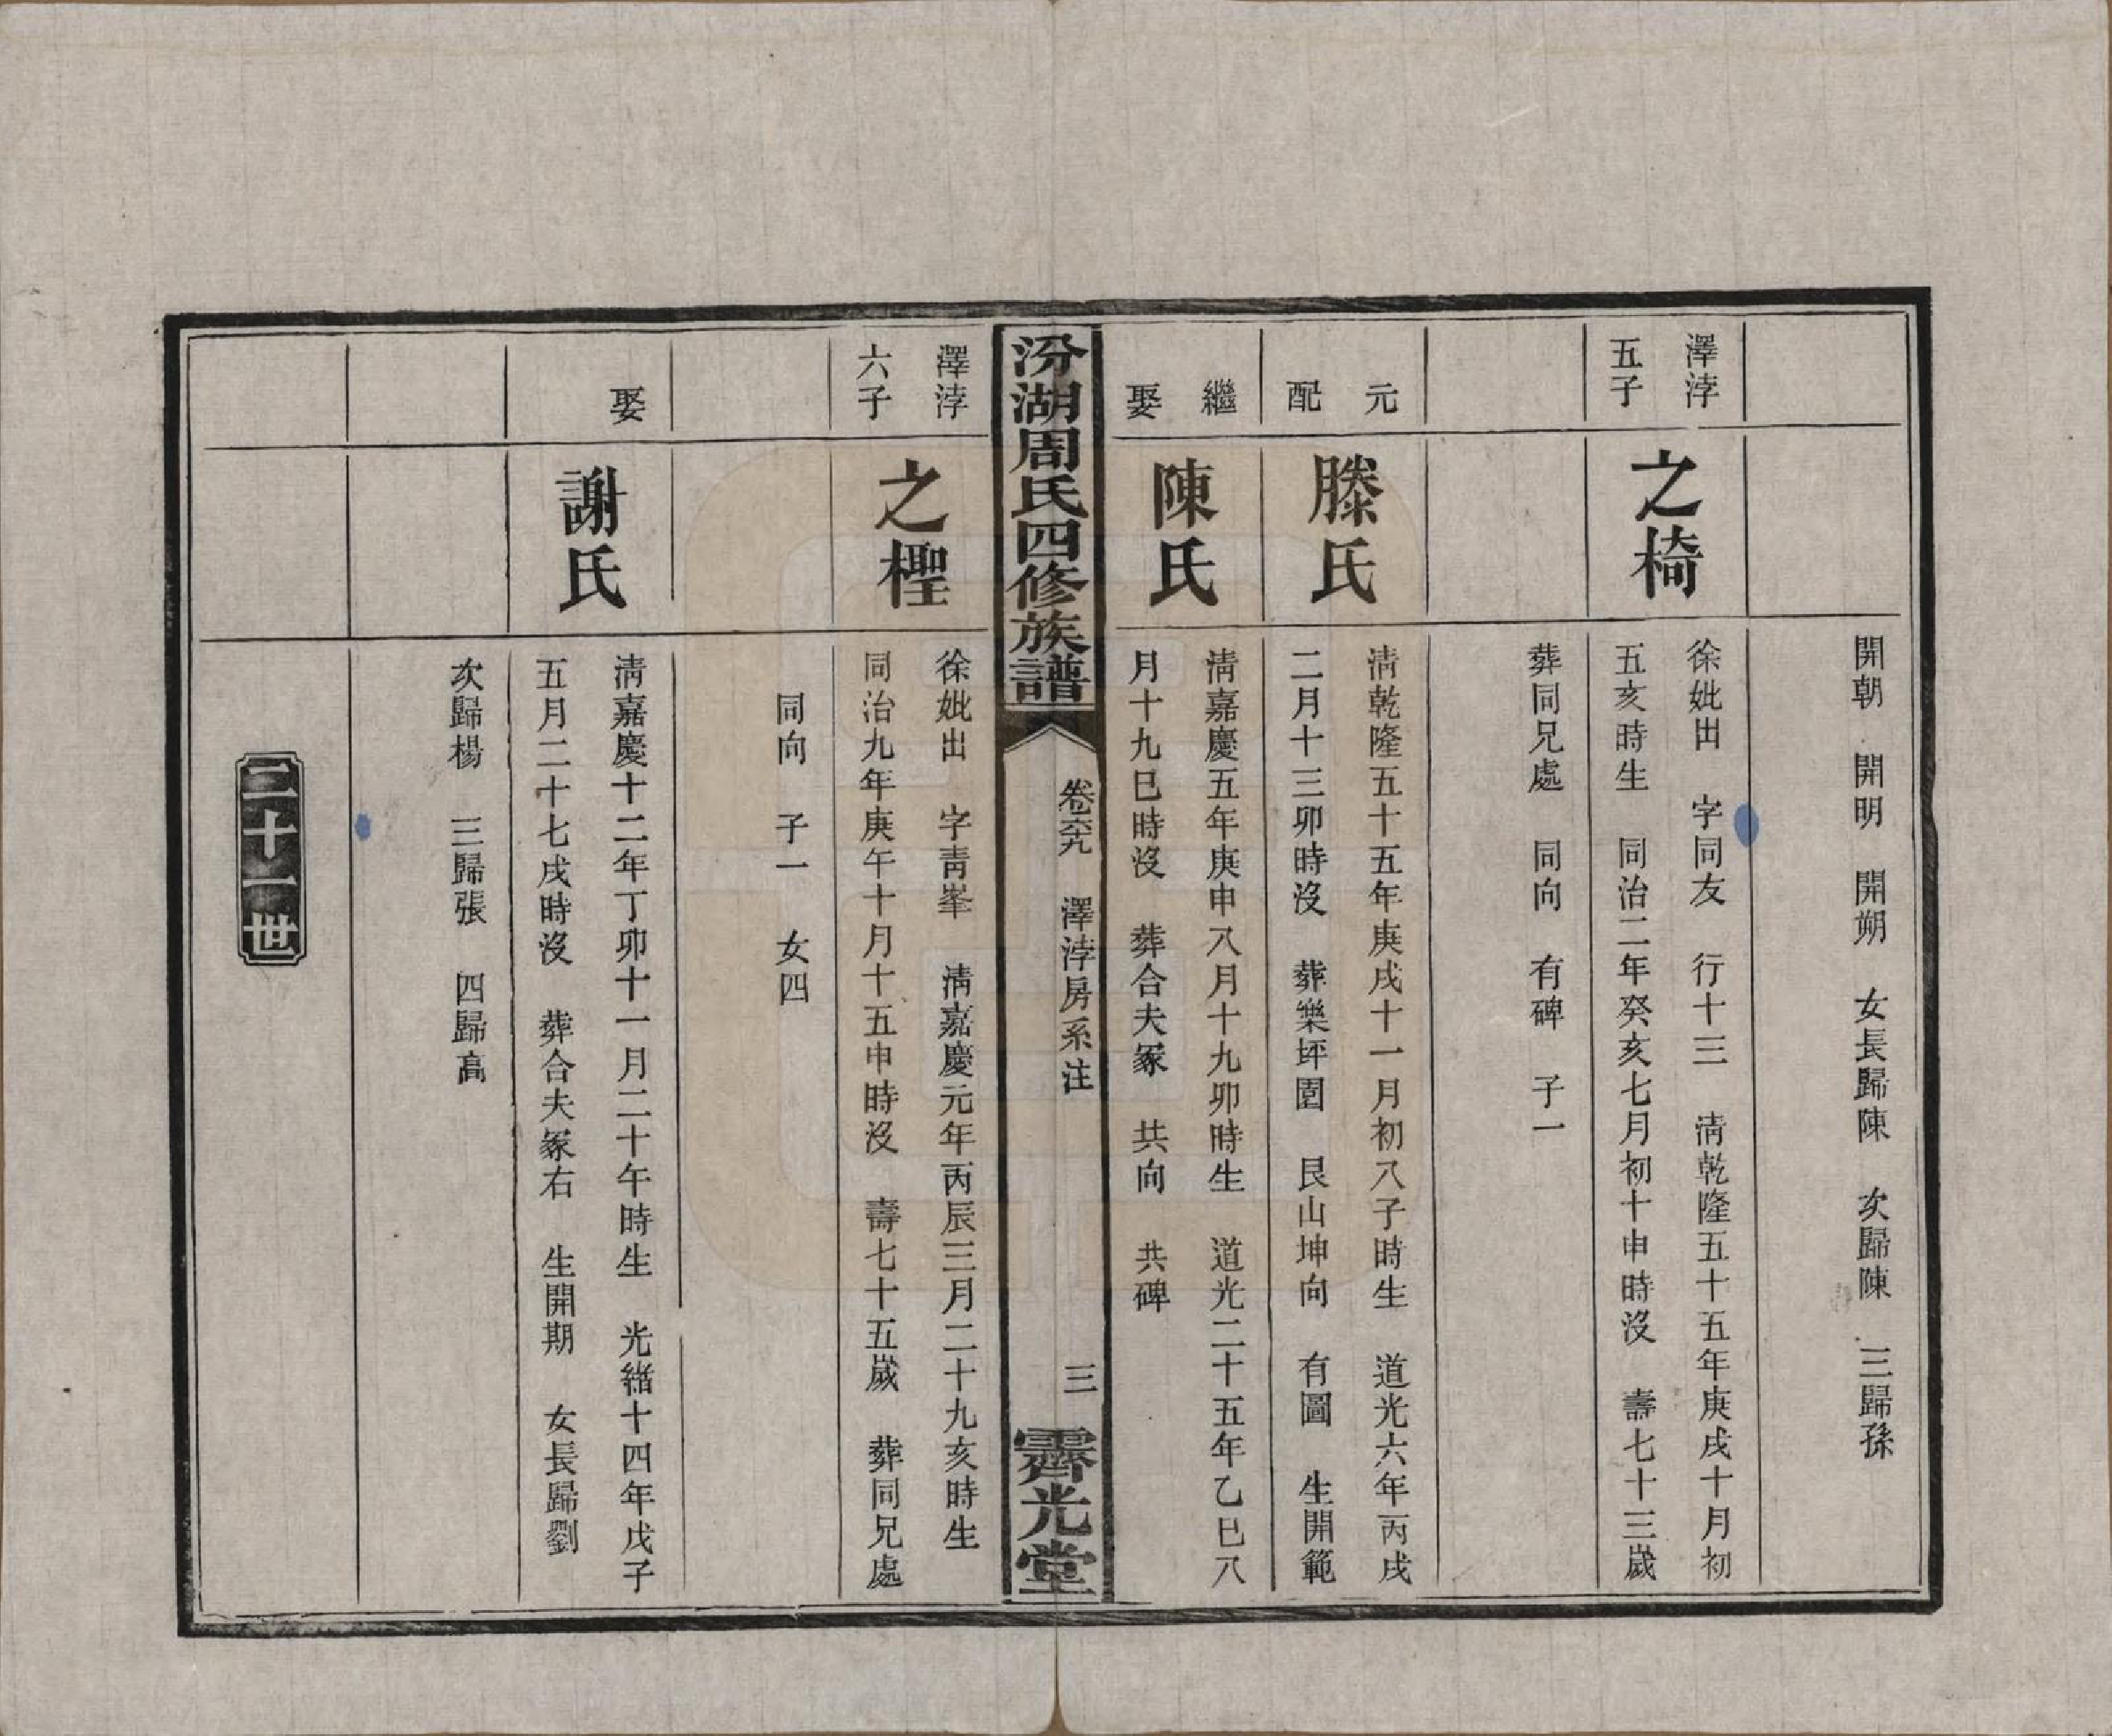 開朝　開明　開朔　女長歸陳　次歸陳　三歸孫
澤浡
五子
之椅
徐妣出　字同友　行十三　清乾隆五十五年庚戌十月初
五亥時生　同治二年癸亥七月初十申時沒　壽七十三歲
葬同兄處　同向　有碑　子一
元
配
滕氏
清乾隆五十五年庚戌十一月初八子時生　道光六年丙戌
二月十三卯時沒　葬樂坪園　艮山坤向　有圖　生開範
繼
娶
陳氏
清嘉慶五年庚申八月十九卯時生　道光二十五年乙巳八
月十九巳時沒　葬合夫冢　共向　共碑
汾湖周氏四修族譜
卷六九　澤浡房系注
三
霽光堂
澤浡
六子
之檉
徐妣出　字青峯　清嘉慶元年丙辰三月二十九亥時生
同治九年庚午十月十五申時沒　壽七十五歲　葬同兄處
同向　子一　女四
娶
謝氏
清嘉慶十二年丁卯十一月二十午時生　光緒十四年戊子
五月二十七戌時沒　葬合夫冢右　生開期　女長歸劉
次歸楊　三歸張　四歸高
二十一世